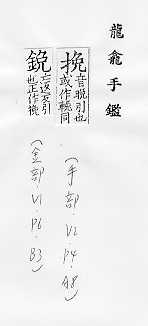 龍龕手鑑
挽音晚引也或作輓同
(手部.V2.P4.A8)
鋔亡返反引也正作挽
(金部 V1 P6.B3)